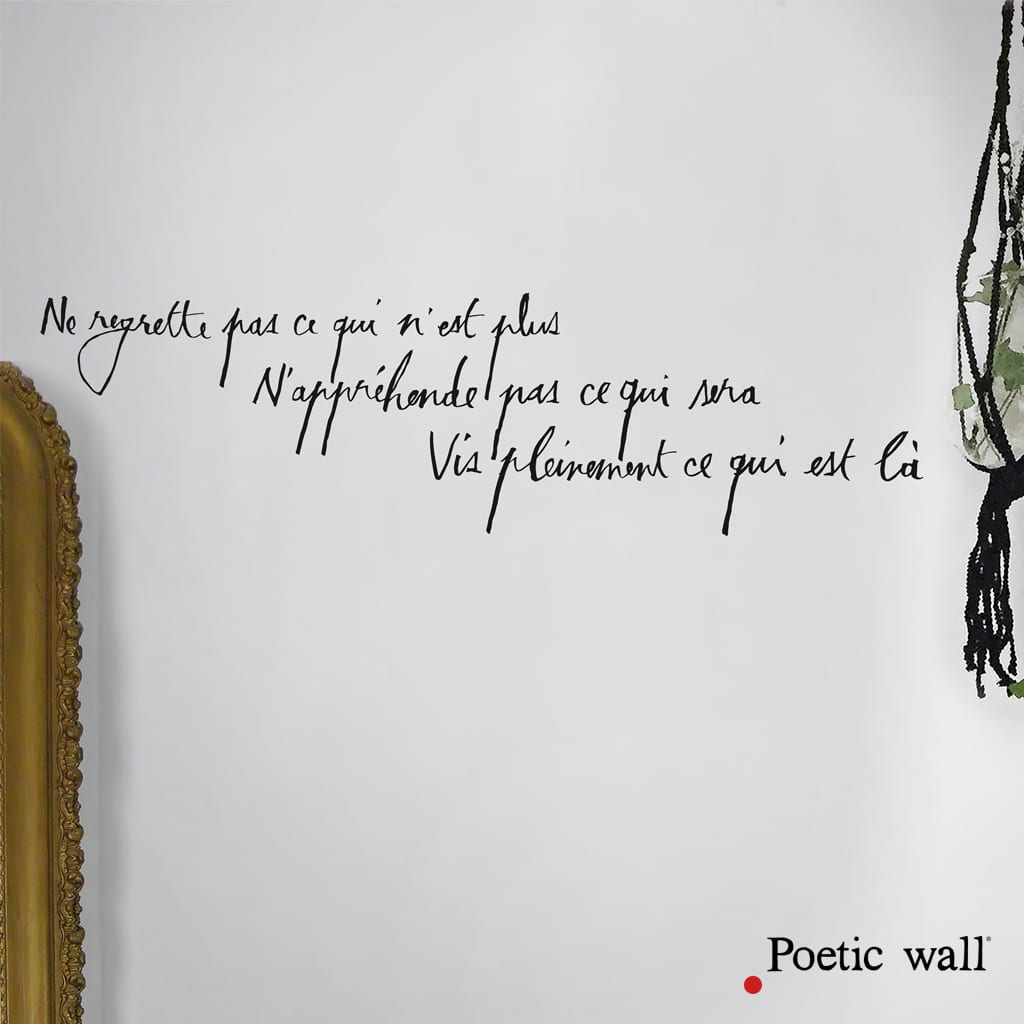 Ne regrette pas ce qui n'est plus
N'appréhende pas ce qui sera
Vis pleinement ce qui est là
Poetic wall®